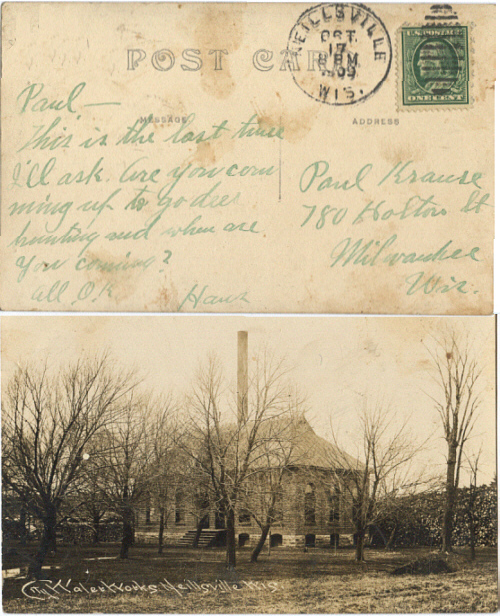 POST CARD
NEILLSVILLE
OCT.
17
8 PM
1909
WIS.
U.S. POSTAGE
ONE CENT
MESSAGE
ADDRESS
Paul—
This is the last time
I'll ask. Are you com
ming up to go deer
hunting and when are
you coming?
All O.K.
Hans
Paul Krause
780 Holton St
Milwaukee
Wis.
City Water Works Neillsville Wis